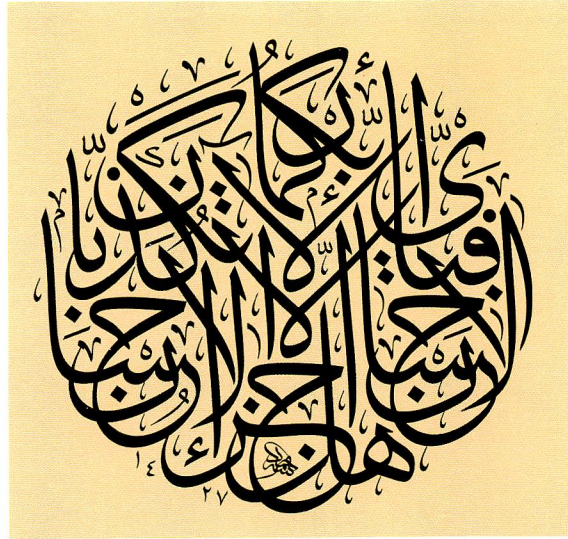 هَلْ جَزَاءُ الْإِحْسَانِ إِلَّا الْإِحْسَانُ فَبِأَيِّ آلَاءِ رَبِّكُمَا تُكَذِّبَانِ
١٤٢٧